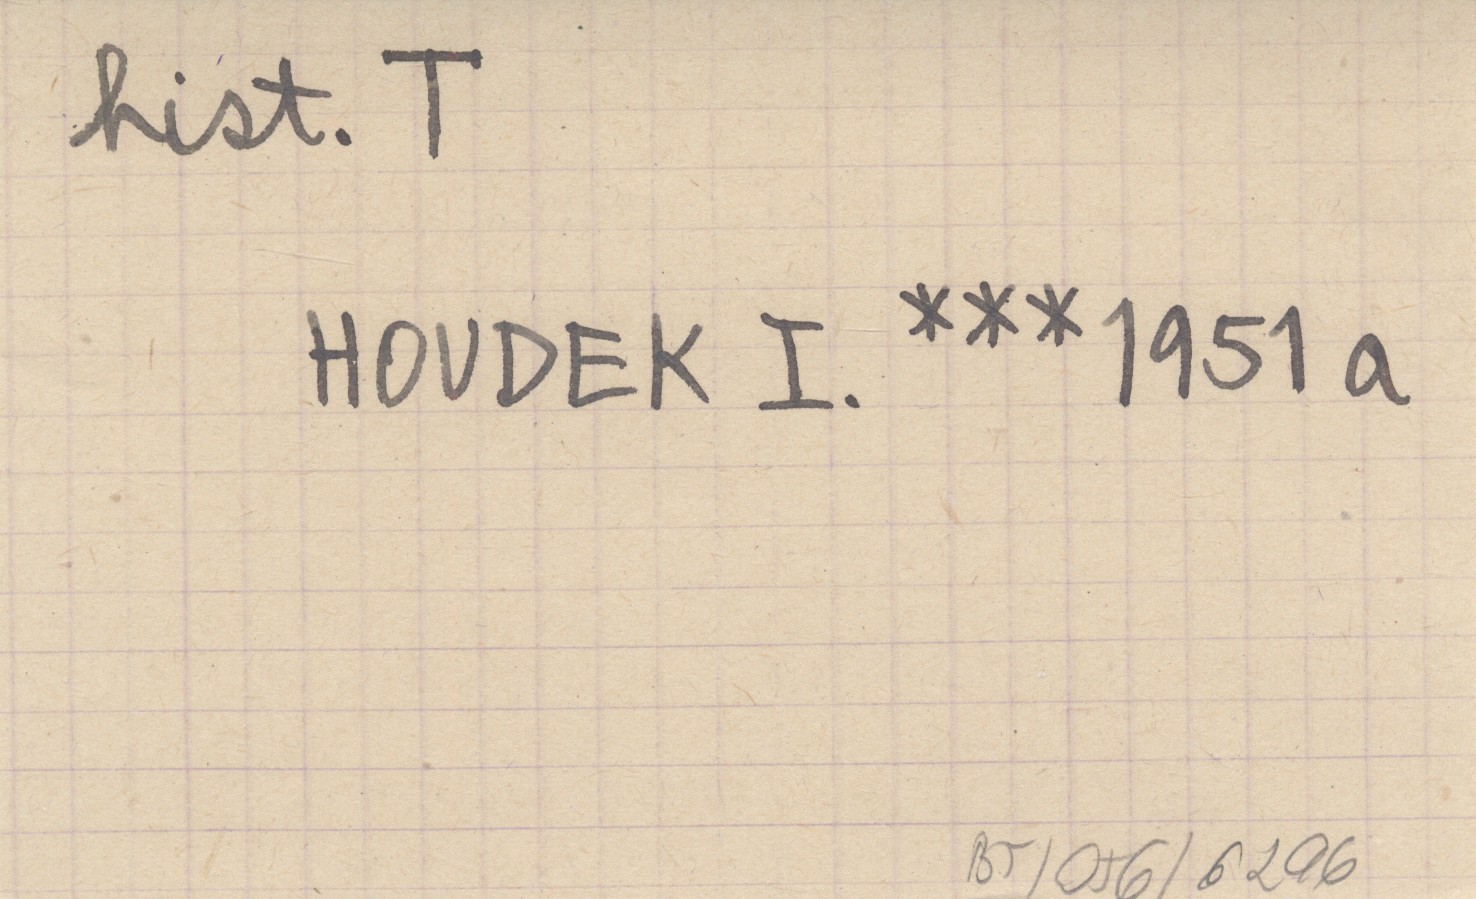 hist. T
HOUDEK I. ***1951 a
BT/056/6296